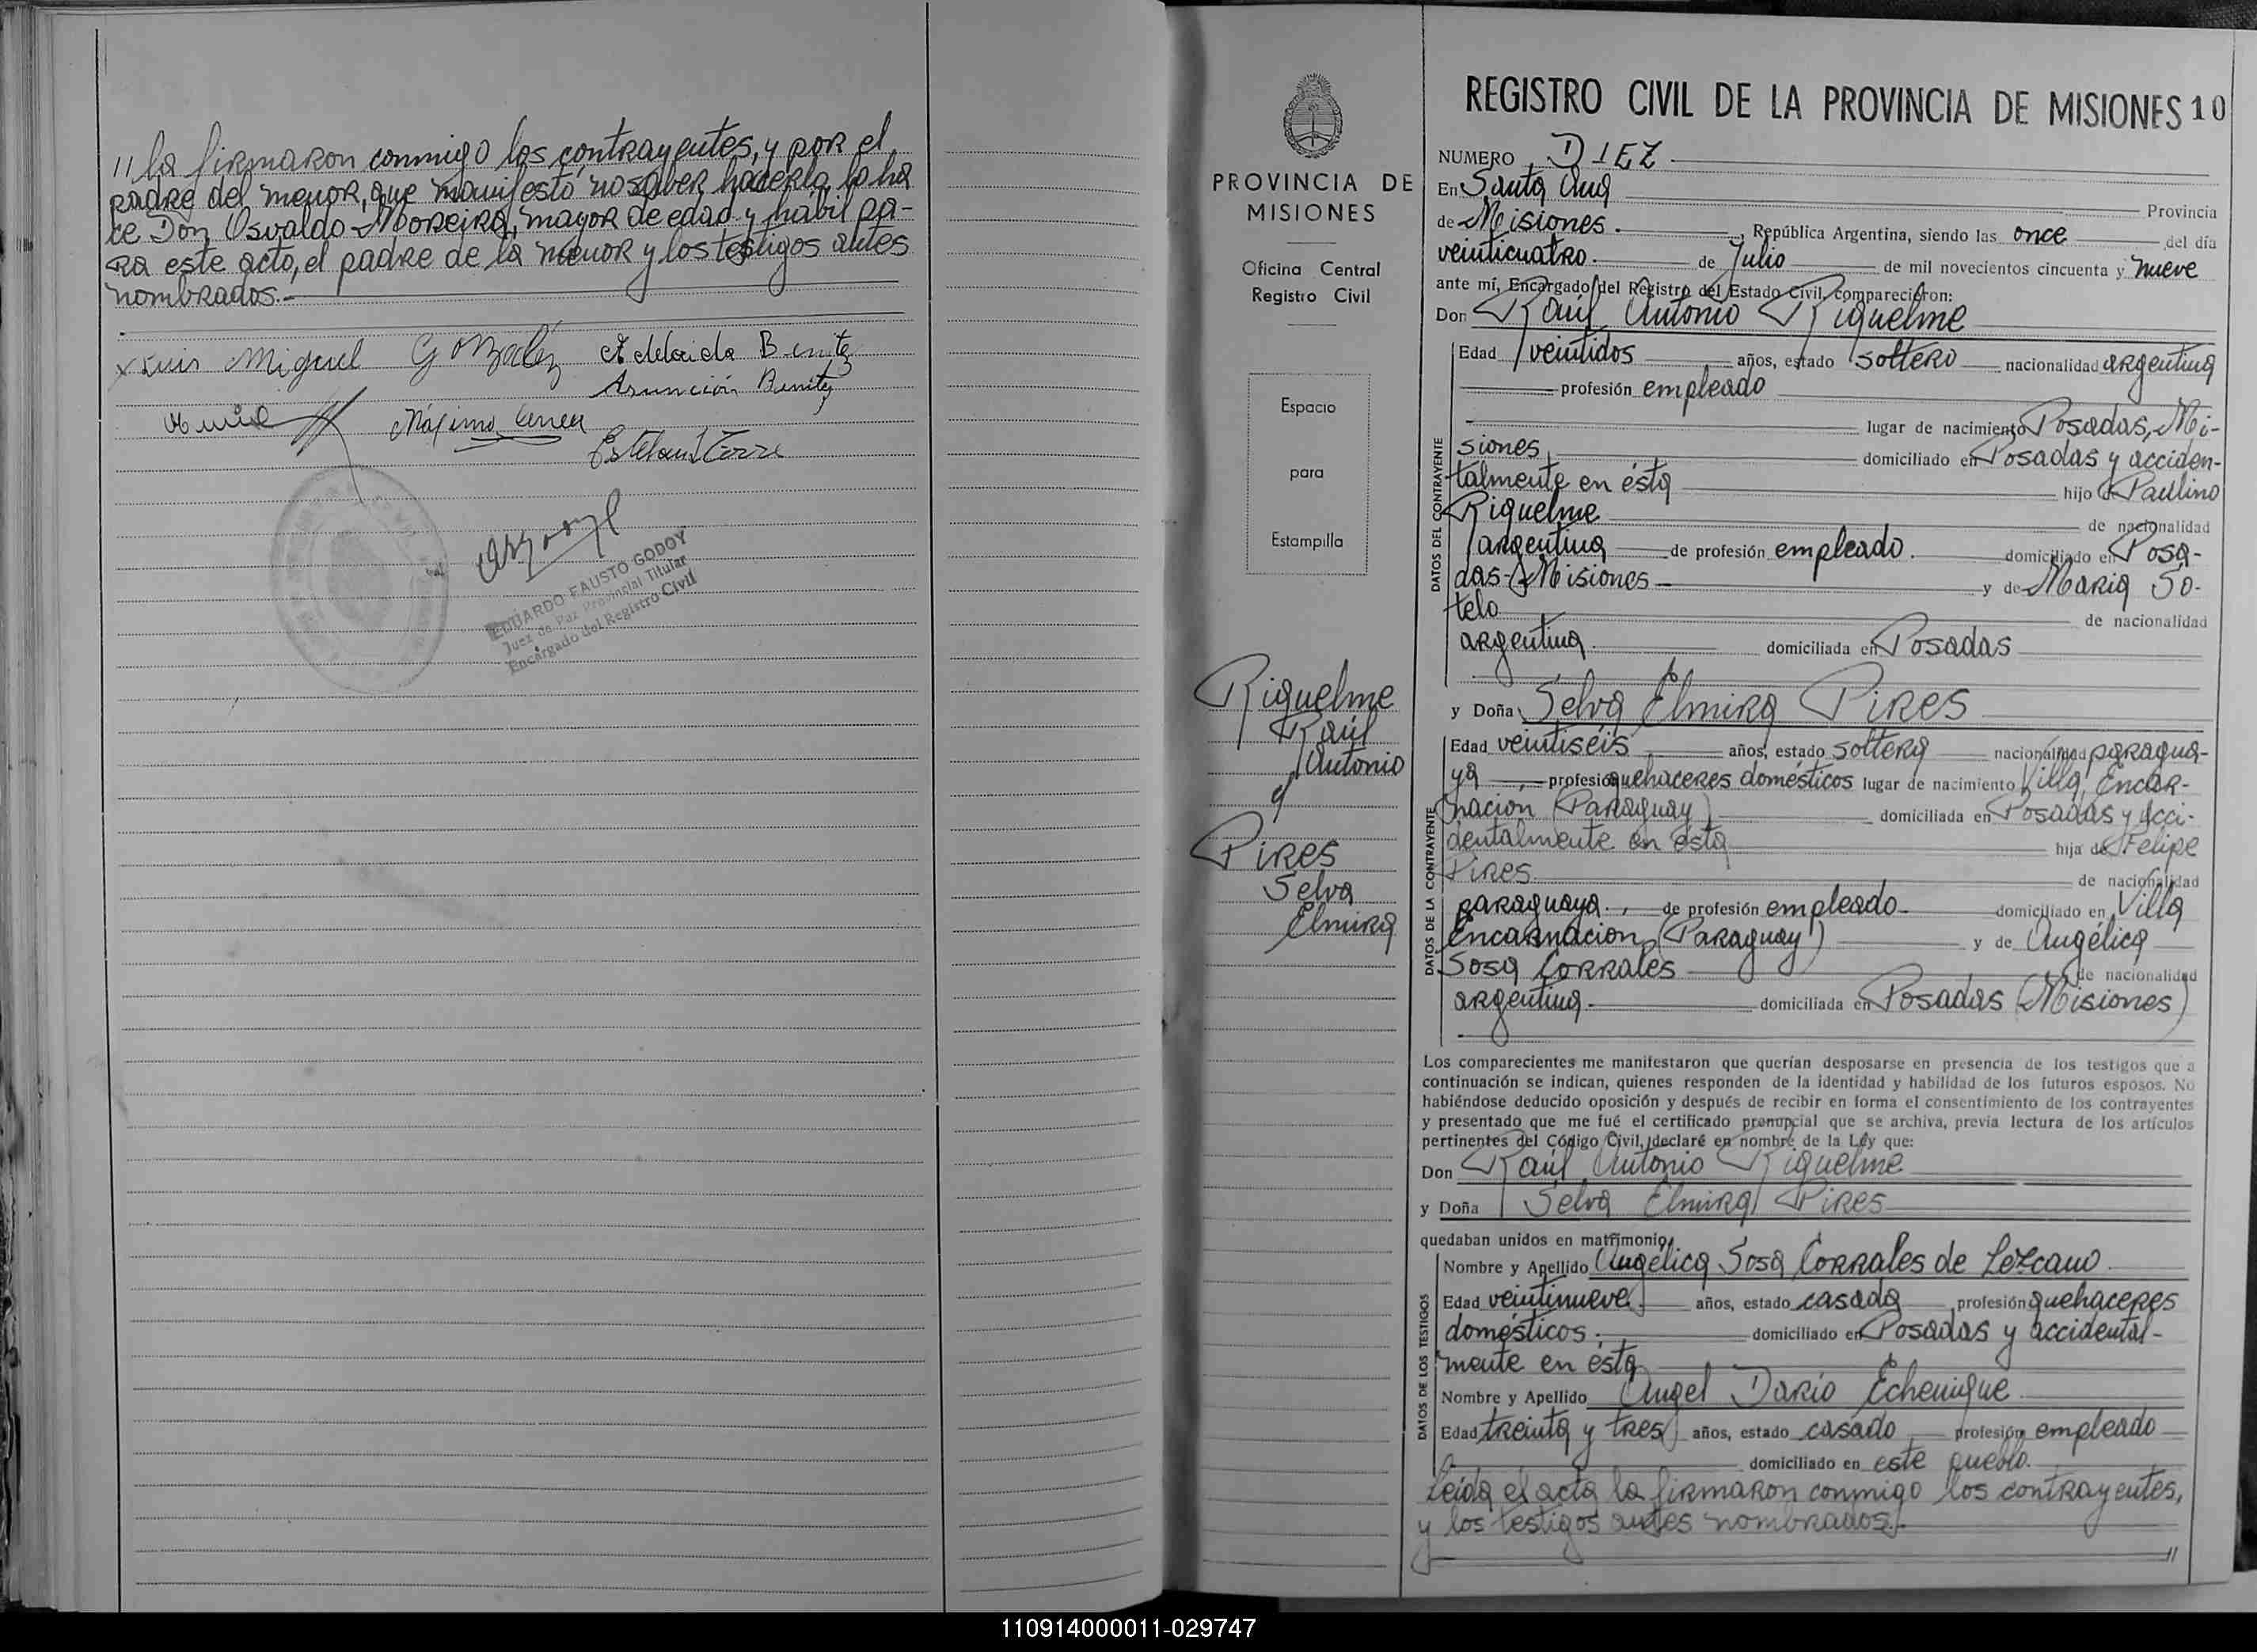 // la firmaron conmigo los contrayentes, y por el
padre del menor, que manifestó no saber hacerlo, lo ha
ce Don Osvaldo Moreira, mayor de edad y hábil pa-
ra este acto, el padre de la menor y los testigos antes
nombrados.-
x Luis Miguel González Adelaida Benitez
Asunción Benitez
Máximo
EDUARDO FAUSTO GODOY
Juez de Paz Provincial Titular
Encargado del Registro Civil
PROVINCIA DE
MISIONES
Oficina Central
Registro Civil
Espacio
para
Estampilla
Riquelme
Raúl
Antonio
y
Pires
Selva
Elmira
REGISTRO CIVIL DE LA PROVINCIA DE MISIONES 10
NUMERO DIEZ
En Santa Ana Provincia
de Misiones. , República Argentina, siendo las once del día
veinticuatro. de Julio de mil novecientos cincuenta y nueve
ante mí, Encargado del Registro del Estado Civil, comparecieron:
Don Raúl Antonio Riquelme
DATOS DEL CONTRAYENTE
Edad veintidos años, estado soltero nacionalidad argentina
profesión empleado
lugar de nacimiento Posadas, Mi-
siones domiciliado en Posadas y acciden-
talmente en ésta hijo de Paulino
Riquelme de nacionalidad
argentina de profesión empleado. domiciliado en Posa-
das-Misiones y de María So-
telo de nacionalidad
argentina. domiciliada en Posadas
y Doña Selva Elmira Pires
DATOS DE LA CONTRAYENTE
Edad veintiséis años, estado soltera nacionalidad paragua-
ya profesión quehaceres domésticos lugar de nacimiento Villa Encar-
nación (Paraguay) domiciliada en Posadas y acci-
dentalmente en ésta hija de Felipe
Pires de nacionalidad
paraguaya. de profesión empleado domiciliado en Villa
Encarnacion (Paraguay) y de Angélica
Sosa Corrales de nacionalidad
argentina. domiciliada en Posadas (Misiones)
Los comparecientes me manifestaron que querían desposarse en presencia de los testigos que a
continuación se indican, quienes responden de la identidad y habilidad de los futuros esposos. No
habiéndose deducido oposición y después de recibir en forma el consentimiento de los contrayentes
y presentado que me fué el certificado prenupcial que se archiva, previa lectura de los artículos
pertinentes del Código Civil, declaré en nombre de la Ley que:
Don Raúl Antonio Riquelme
y Doña Selva Elmira Pires
quedaban unidos en matrimonio.
DATOS DE LOS TESTIGOS
Nombre y Apellido Angélica Sosa Corrales de Lezcano
Edad veintinueve años, estado casada profesión quehaceres
domésticos. domiciliado en Posadas y accidental-
mente en ésta
Nombre y Apellido Angel Dario Echenique
Edad treinta y tres años, estado casado profesión empleado
domiciliado en este pueblo.
Leída el acta la firmaron conmigo los contrayentes,
y los testigos antes nombrados.-
//
110914000011-029747